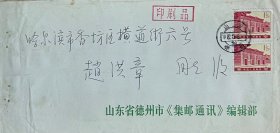 印刷品
哈尔滨市香坊区横道街六号
赵洪章 同志 收
山东省德州市《集邮通讯》编辑部